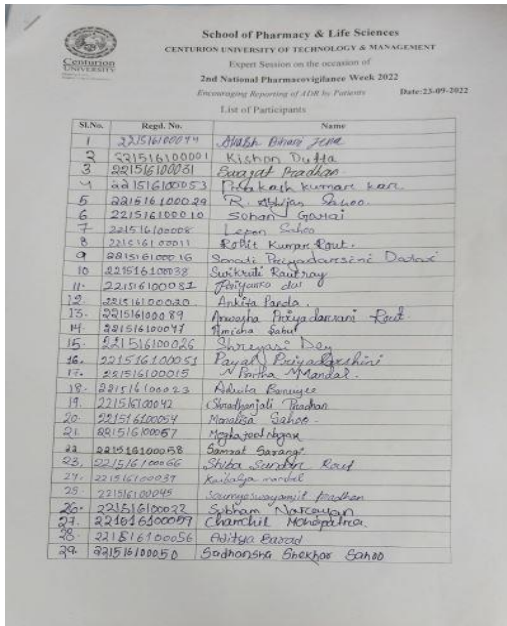 School of Pharmacy & Life Sciences
CENTURION UNIVERSITY OF TECHNOLOGY & MANAGEMENT
Centurion
UNIVERSITY
Expert Session on the occasion of
2nd National Pharmacovigilance Week 2022
Encouraging Reporting of ADR by Patients Date:23-09-2022
List of Participants
Sl.No. Regd. No. Name
1 221516100074
2 221516100001 Kishon Dutta
3 221516100031 Swagat Pradhan
4 221516100053 Prakash Kumar Kar
5 221516100029 R. Abhijan Sahoo.
6 221516100010 Sohan Gorai
7 221516100008 Lepon Sahoo
8 221516100011 Rohit Kumar Rout.
9 221516100016 Sonali Priyadarsini
10 221516100038 Swikruti Rautray
11. 221516100081 Priyanka das
12. 221516100020 Ankita Panda.
13. 221516100089 Anwasha Priyadarsani Rout
14. 221516100047 Amisha Sabut
15. 221516100026 Shreyasi Dey
16. 221516100051 Payal Priyadarshini
17. 221516100015 N Partha Mandal.
18. 221516100023 Banerjee
19. 221516100042 Shradhanjali Pradhan
20. 221516100054 Monalisa Sahoo.
21. 221516100057
22 221516100058 Samrat Sarangi
23. 221516100066 Shiba Sundar Rout
24. 221516100037 Kaibalya mandal
25. 221516100045 Soumyaswayamjit Pradhan
26. 221516100022 Subham Narayan
27. 221516100059 Chanchil Mohapatra.
28. 221516100056 Aditya Barad
29. 221516100050 Sudhansha Shekhar Sahoo